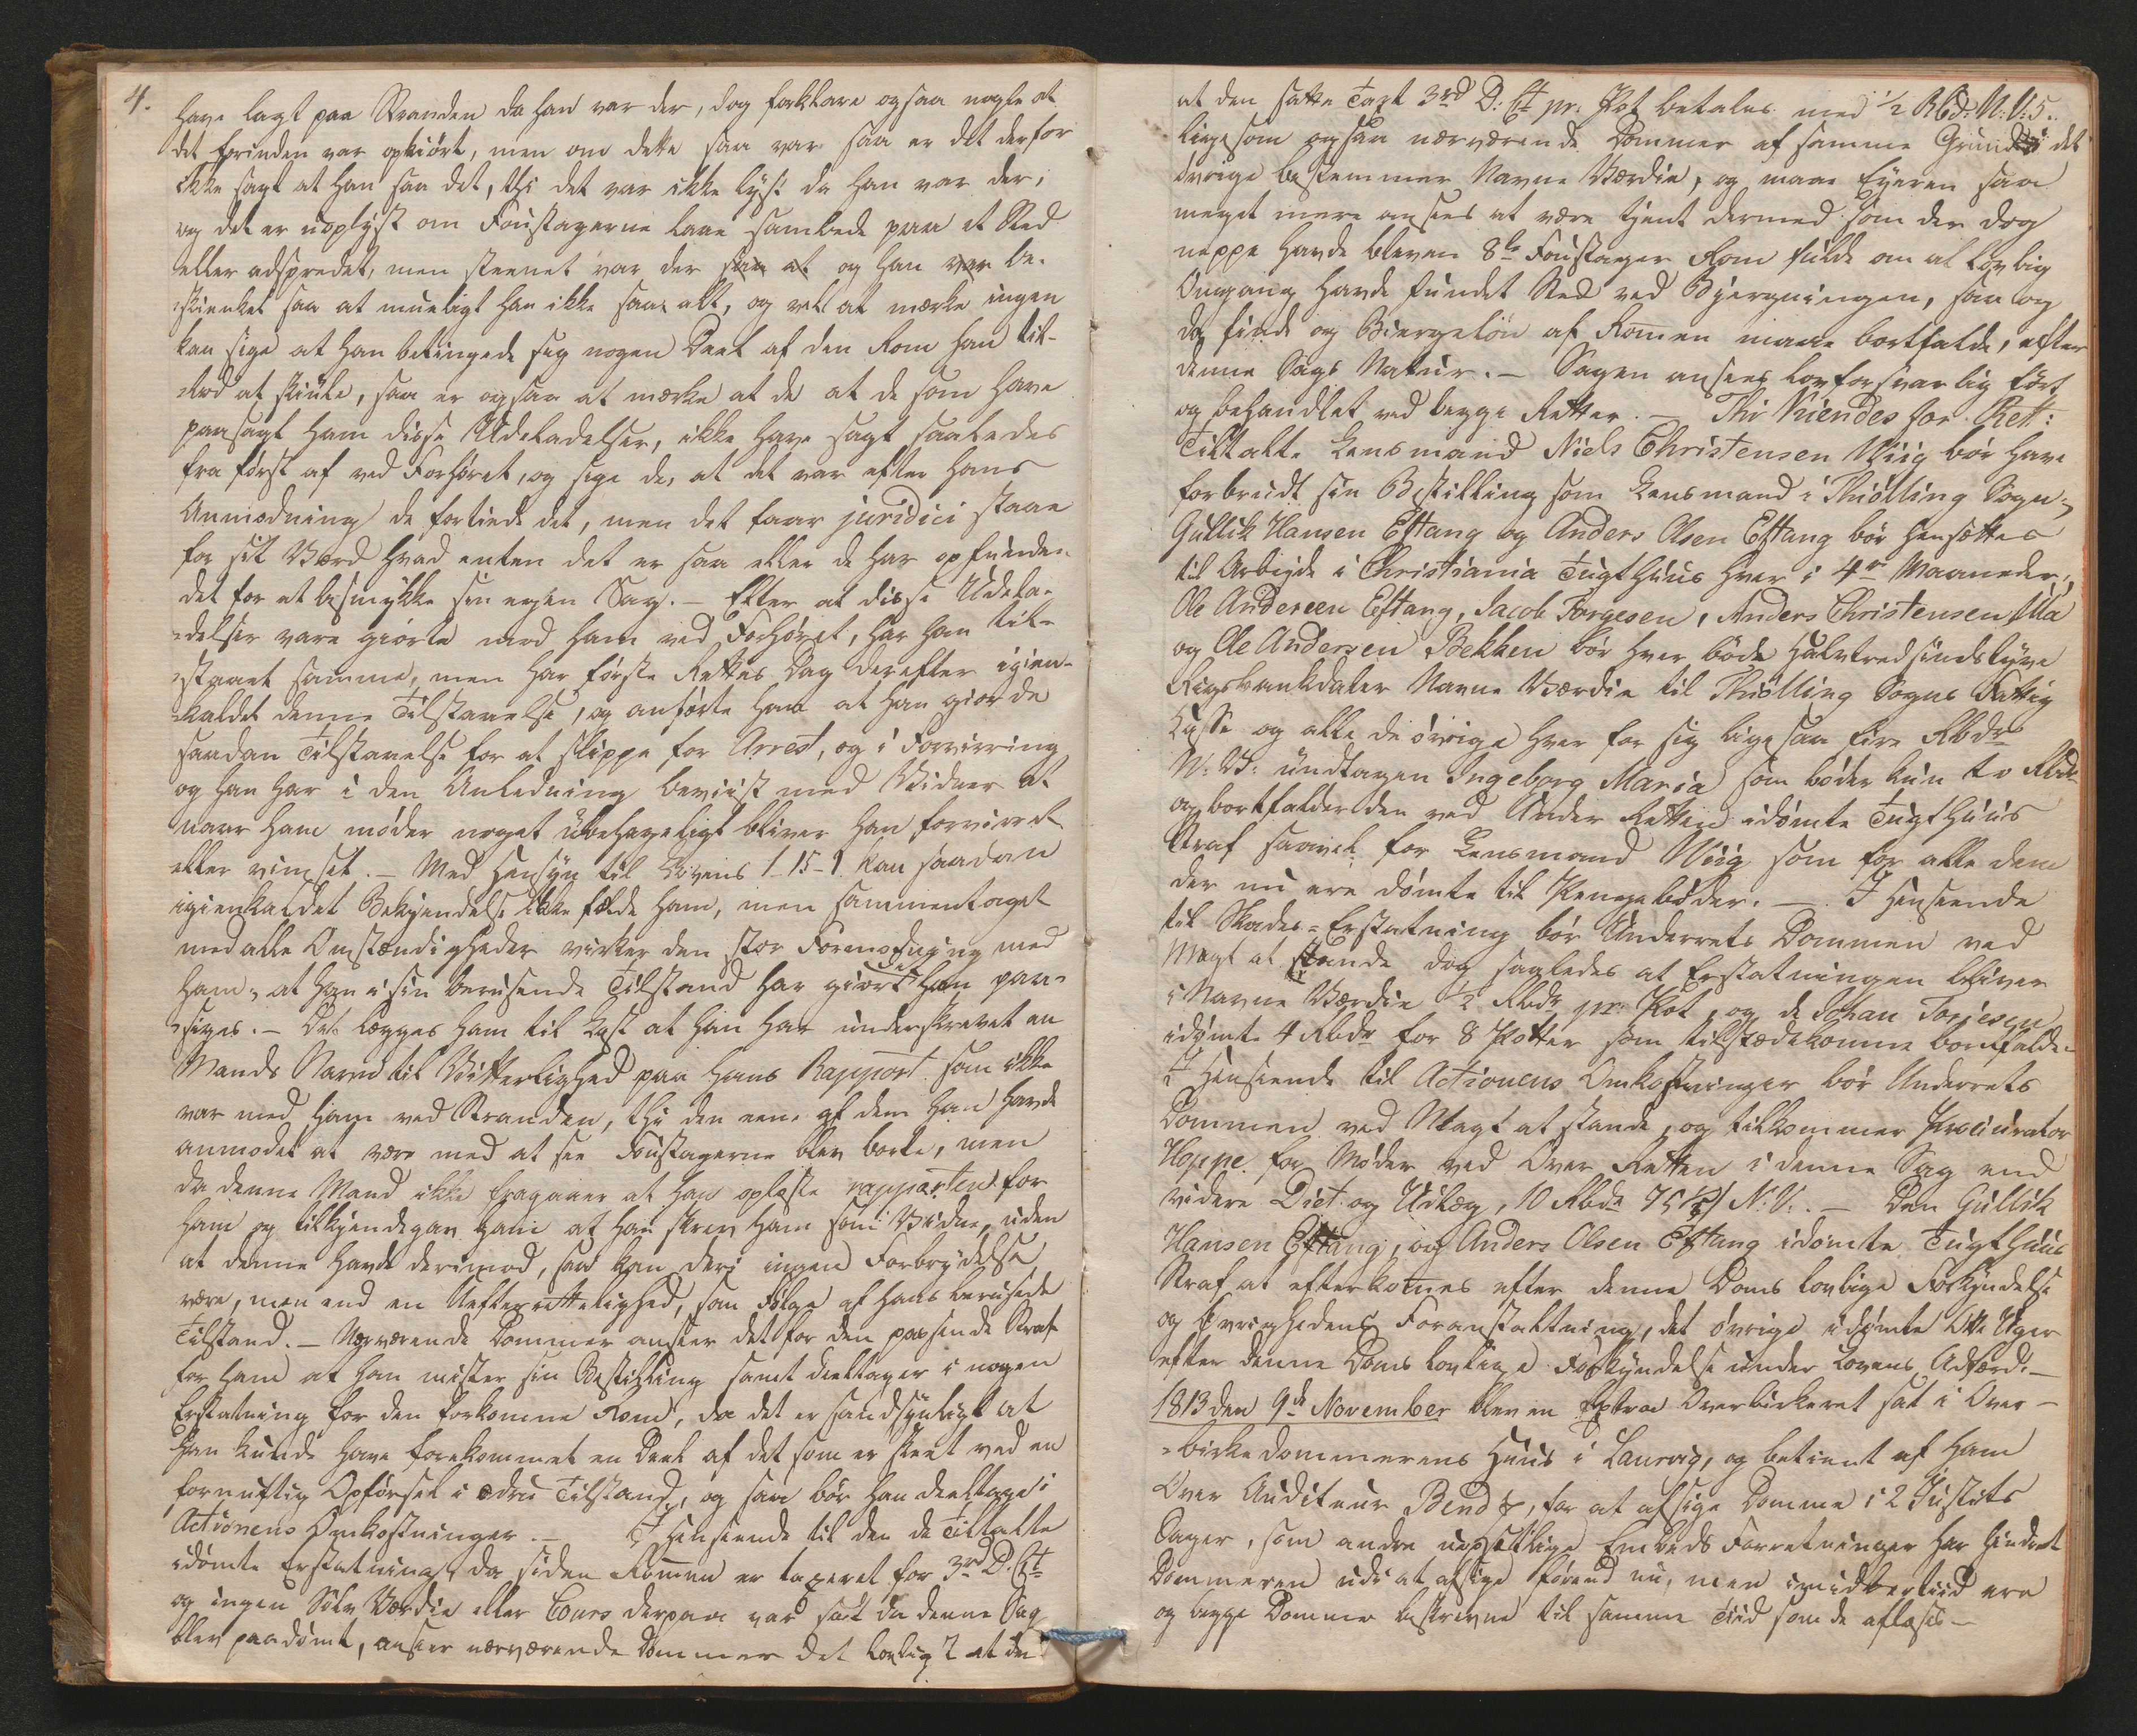 4.
have lagt paa Stranden da han var der, dog forklare ogsaa nogle at
det forinden var opkiørt, men om dette saa var saa er det derfor
ikke sagt at han saa det, thi det var ikke lyst da han var der,
og det er uoplyst om Foustagerne laae samlede paa et Sted
eller adspredet, men steenet var der og han var be-
skienket saa at mueligt han ikke saae alt, og vel at mærke ingen
kan sige at han betingede sig nogen Deel af den Rom han til-
lod at skiule, saa er ogsaa at mærke at de at de som have
paasagt ham disse Udeladelser, ikke have sagt saaledes
fra først af ved Forhøret, og sige de, at det var efter hans
Anmodning de fortiede det, men det faar juridici staae
for sit Værd hvad enten det er saa eller de har opfunden
det for at besmykke sin egen Sag. – Efter at disse Udela-
delser vare giorte mod ham ved Forhøret, har han til-
staaet samme, men har første Rettes Dag derefter igien-
kaldet denne Tilstaaelse, og anførte han at han giorde
saadan Tilstaaelse for at slippe for Arrest, og i Forvirring
og han har i den Anledning beviist med Vidner at
naar ham møder noget ubehageligt bliver han forvirret
eller vimset. – Med Hensyn til Lovens 1-15-1. kan saadan
igienkaldet Bekjendelse ikke fælde ham, men sammentaget
med alle Omstændigheder virker den stor Formodning mod
ham, at han i sin berusende Tilstand har giort det ham paa-
siges. – Det lægges ham til Last at han har underskrevet en
Mands Navn til Vitterlighed paa hans Rapport som ikke
var med ham ved Stranden, thi den eene af dem han havde
anmodet at være med at see Foustagerne blev borte, men
da denne Mand ikke fragaaer at han oplæste rapporten for
ham og tilkjendegav ham at han skrev ham som Vidne, uden
at denne havde derimod, saa kan deri ingen Forbrydelse
være, men end en Uefterrettelighed, som Følge af hans berusede
Tilstand. – Nærværende Dommer anseer det for den passende Straf
for ham at han mister sin Bestilling samt deeltager i nogen
Erstatning for den forkomne Rom, da det er sandsynligt at
han kunde have forekommet en Deel af det som er skeet ved en
fornuftig Opførsel i ædru Tilstand, og saa bør han deeltage i
Actionens Omkostninger. – I Henseende til den de Tiltalte
idømte Erstatning, da siden Rommen er taxeret for 3rd D. Ct
og ingen Sølv Værdie eller Cours derpaa var sadt da denne Sag
blev paadømt, anseer nærværende Dommer det lovligt at den
at den satte Taxt 3rd D: Ct pr. Pot betales med 1/2 Rbd: N: V: 5.
ligesom ogsaa nærværende Dommer af samme Grund i det
øvrige bestemmer Navne Værdie, og maae Eyeren saa
meget mere ansees at være tjent dermed som der dog
neppe havde bleven 8te Foustager Rom fulde om al lovlig
Omgang havde fundet Sted ved Bjergningen, saa og
da finde og Biergeløn af Rommen maae bortfalde, efter
denne Sags Natur. – Sagen ansees lovforsvarlig ført
og behandlet ved begge Retter. – Thi Kiendes for Ret:
Tiltalte Lensmand Niels Christensen Wiig bør have
forbrudt sin Bestilling som Lensmand i Thiølling Sogn;
Gullik Hansen Eftang og Anders Olsen Eftang bør hensættes
til Arbejde i Christiania Tugthuus hver i 4re Maaneder;
Ole Andersen Eftang, Jacob Torgesen, Anders Christensen Ula
og Ole Andersen Bekken bør hver bøde halvtredsindstyve
Rigsbankdaler Navne Værdie til Thiølling Sogns Fattig
Casse og alle de øvrige hver for sig ligesaa fire Rbdr
N: V: undtagen Ingeborg Maria som bøder kun to Rbdr
og bortfalder den ved Under Retten idømte Tugthuus
Straf saavel for Lensmand Wiig som for alle dem
der nu ere dømte til Pengebøder. – I Henseende
til Skades-Erstatning bør Underrets Dommen ved
Magt at stande dog saaledes at Erstatningen bliver
i Navne Værdie 1/2 Rbdr pr. Pot, og de Johan Torjesen
idømte 4 Rbdr for 8 Potter som tilstædekomne bortfalde.
I Henseende til Actionens Omkostninger bør Underrets
Dommen ved Magt at stande, og tilkommer Procurator
Hoppe for Møder ved Over Retten i denne Sag end
videre Diet og Udlæg, 10 Rbdr 75 N: V: – Den Gullik
Hansen Eftang, og Anders Olsen Eftang idømte Tugthuus
Straf at efterkomes efter denne Doms lovlige Forkyndelse
og Øvrighedens Foranstaltning, det øvrige idømte Otte Uger
efter denne Doms lovlige Forkyndelse under Lovens Adfærd. –
1813 den 9de November blev en Extra Overbirkeret sat i Over-
birkedommerens Huus i Laurvig, og betient af ham
Over Auditeur Bendz, for at afsige Domme i 2 Justits
Sager, som andre uopsettlige Embeds Forretninger har hindret
Dommeren udi at afsige førend nu, men imidlertiid ere
og begge Domme beskrevne til samme Tiid som de aflæses –